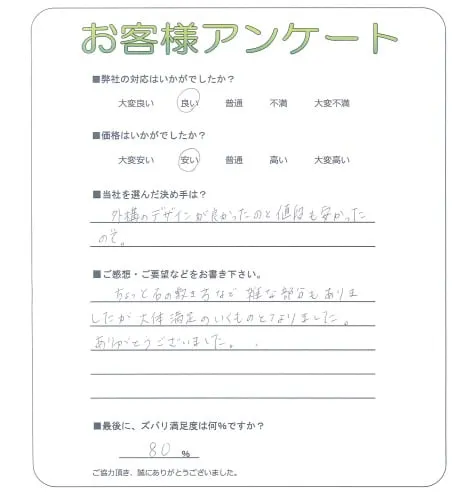 お客様アンケート
■弊社の対応はいかがでしたか？
大変良い 良い 普通 不満 大変不満
■価格はいかがでしたか？
大変安い 安い 普通 高い 大変高い
■当社を選んだ決め手は？
外構のデザインが良かったのと値段も安かった
ので。
■ご感想・ご要望などをお書き下さい。
ちょっと石の敷き方など雑な部分もありま
したが大体満足のいくものとなりました。
ありがとうございました。
■最後に、ズバリ満足度は何％ですか？
80 %
ご協力頂き、誠にありがとうございました。